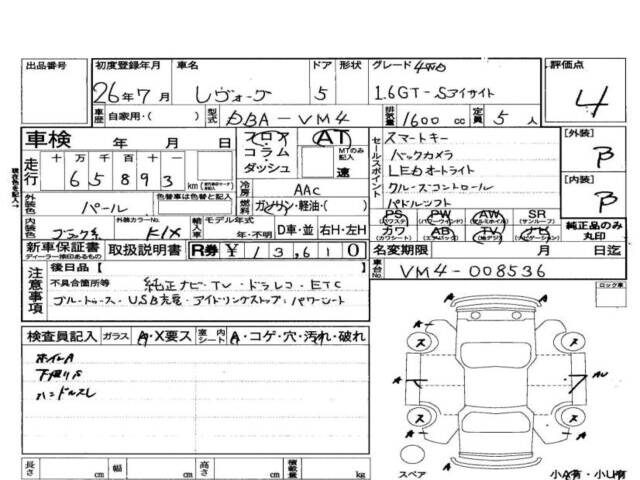 出品番号 初度登録年月 車名 ドア 形状 グレード 4WD 評価点
26年7月 レヴォーグ 5 1.6GT-Sアイサイト 4
車歴 自家用・( ) 型式 DBA-VM4 排気量 1600 cc 定員 5 人
車検 年 月 日 フロア AT セールスポイント スマートキー [外装]
コラム MTのみ記入 バックカメラ B
走行 十万千百十 ダッシュ 速 LEDオートライト
65893 km 冷房 AAC クルーズコントロール [内装]
外装色 パール 色替車は色替と記入 燃料 ガソリン・軽油・( ) パドルシフト B
内装色 ブラック系 外装カラーNo. K1X 輸入車 モデル年式 年・不明 D車・並 右H・左H
PS PW AW SR
(パワステ) (パワーウインド) (アルミホイル) (サンルーフ)
カワ AB TV ナビ 純正品のみ丸印
(カワシート) (エアバッグ) (地デジ) (ナビゲーション)
新車保証書 取扱説明書 R券 ¥13,610 名変期限 月 日迄
ディーラー捺印あるもの
注意事項 後日品[ ] 車台No. VM4-008536
不具合箇所等 純正ナビ・TV・ドラレコ・ETC ロック車
ブルートゥース・USB充電・アイドリングストップ・パワーシート
検査員記入 ガラス A・X要ス 室内 シート A・コゲ・穴・汚れ・破れ
ホイルA
下廻りS
ハンドルスレ
ス ス
A AU
ス ス
A A
長さ cm 幅 cm 高さ cm 積載量 kg
スペア 小A有・小U有